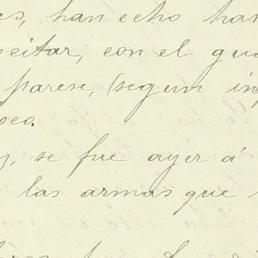 es, han echo han
peitar, con el que
parese, (segun in
oco.
y, se fue ayer á
las armas que